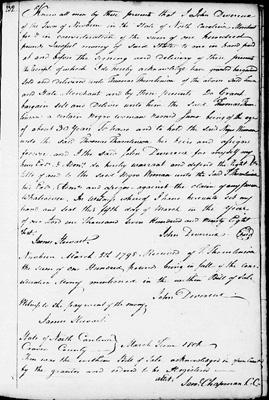 Know all men by these presents that I John Devereux
of the Town of Newbern in the State of North Carolina, Merchant
for & in consideration of the sum of one hundred
pounds Lawful money by said State to me in hand paid
at and before the sealing and delivery of these presents
the receipt whereof I do hereby acknowledge have granted bargained
sold and delivered unto Thomas Thomlinson of the above said Town
and State Merchant and by these presents Do Grant
bargain sell and Deliver unto him the said Thomas Thom
linson a certain Negro woman named Jane being of the age
of about 30 years To have and to hold the said Negro Woman
unto the said Thomas Thomlinson his heirs and assigns
forever. and I the said John Devereux for myself my
heirs Exrs & Admrs do hereby warrant and defend the Right &
title of and to the said Negro Woman unto the said T. Thomlinson
his Exrs Admrs and assigns against the claim of any person
Whatsoever. In witness whereof I have hereunto set my
hand and seal this fifth day of March in the Year
of our Lord one Thousand Seven Hundred and Ninety Eight
Test.
John Devereux (Seal)
James Stewart
Newbern March 5th 1798. Received of T. Thomlinson
the sum of One Hundred pounds being in full of the con-
sideration Money mentioned in the written Bill of Sale.
John Devereux
Witness to the payment of the money
James Stewart
State of North Carolina
Craven County
March Term 1801.
Then was the written Bill of Sale acknowledged in open Court
by the grantor and ordered to be Registered
attest.
Saml. Chapman C.C.